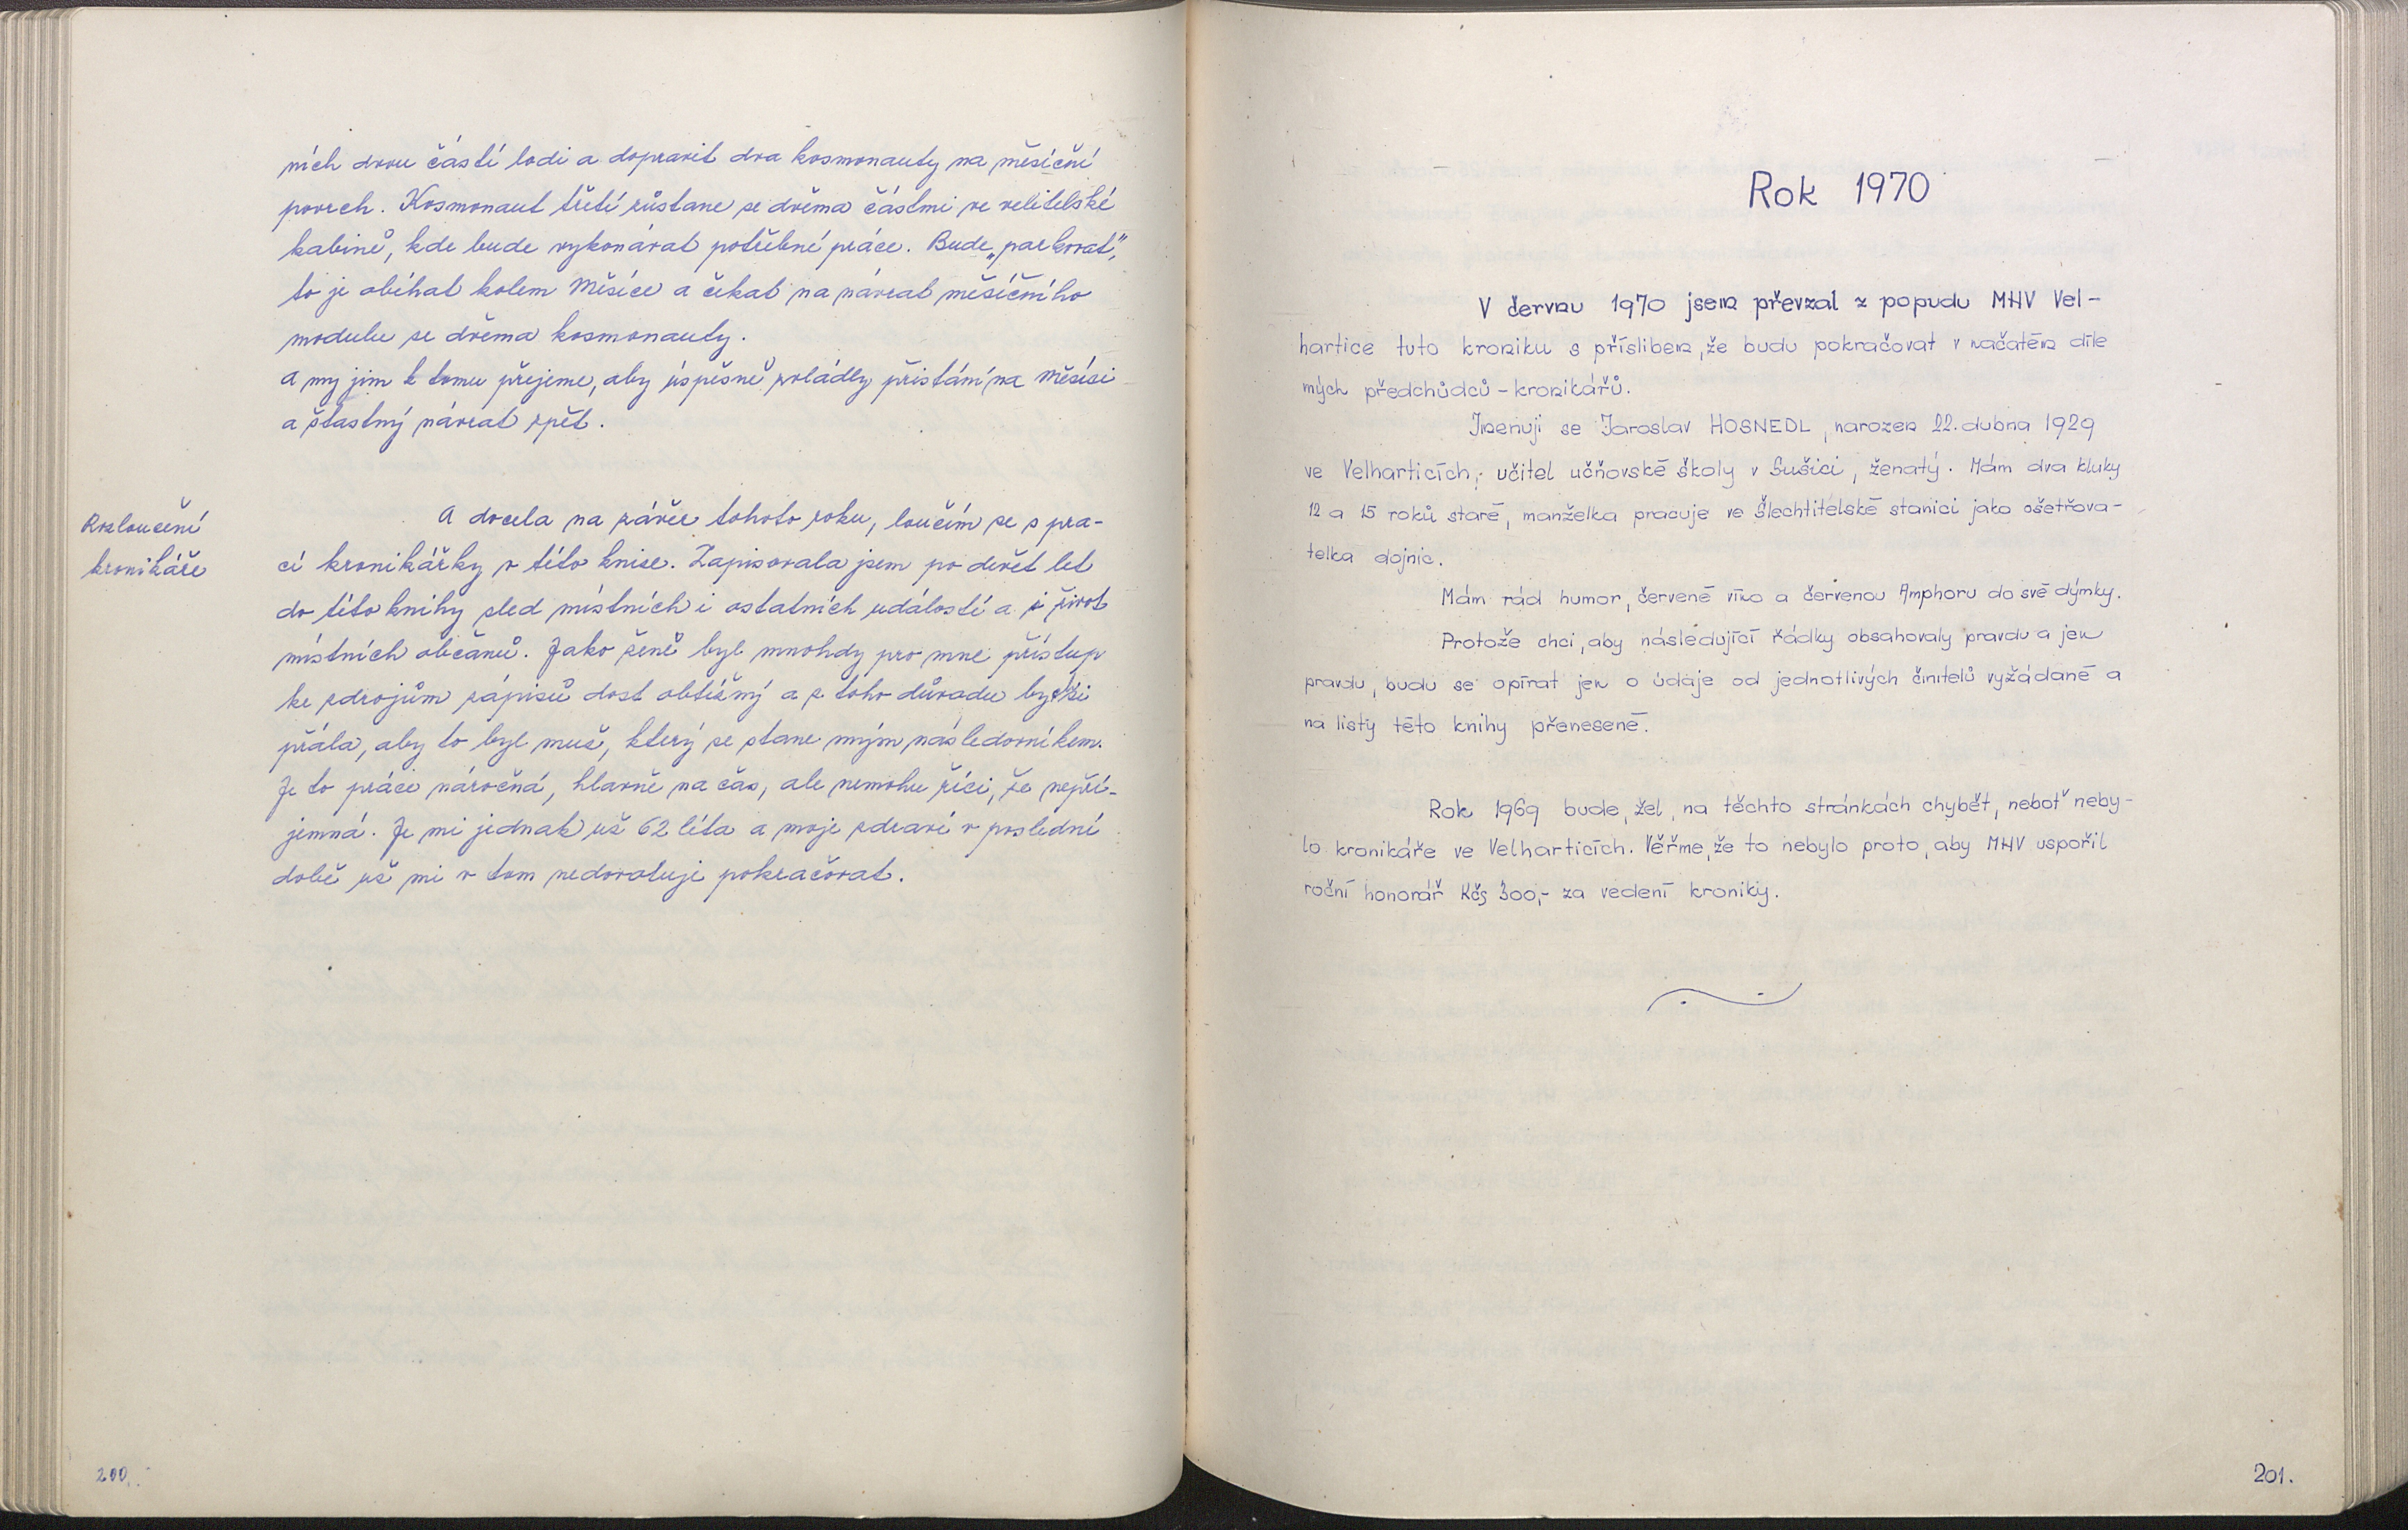 ních dvou částí lodi a dopravit dva kosmonauty na měsíční
povrch. Kosmonaut třetí zůstane se dvěma částmi ve velitelské
kabině, kde bude vykonávat potřebné práce. Bude „parkovat“,
to je obíhat kolem Měsíce a čekat na návrat měsíčního
modulu se dvěma kosmonauty.
A my jim k tomu přejeme, aby úspěšně zvládly přistání na Měsíci
a šťastný návrat zpět.
Rozloučení
kronikáře
A docela na závěr tohoto roku, loučím se s pra-
cí kronikářky v této knize. Zapisovala jsem po devět let
do této knihy sled místních i ostatních událostí a i život
místních občanů. Jako ženě byl mnohdy pro mne přístup
ke zdrojům zápisů dost obtížný a z toho důvodu bych si
přála, aby to byl muž, který se stane mým následovníkem.
Je to práce náročná, hlavně na čas, ale nemohu říci, že nepří-
jemná. Je mi jednak už 62 léta a moje zdraví v poslední
době už mi v tom nedovoluje pokračovat.
200.
Rok 1970
V červnu 1970 jsem převzal z popudu MHV Vel-
hartice tuto kroniku s příslibem, že budu pokračovat v načatém díle
mých předchůdců - kronikářů.
Jmenuji se Jaroslav HOSNEDL, narozen 22. dubna 1929
ve Velharticích, učitel učňovské školy v Sušici, ženatý. Mám dva kluky
12 a 15 roků staré, manželka pracuje ve Šlechtitelské stanici jako ošetřova-
telka dojnic.
Mám rád humor, červené víno a červenou Amphoru do své dýmky.
Protože chci, aby následující řádky obsahovaly pravdu a jen
pravdu, budu se opírat jen o údaje od jednotlivých činitelů vyžádané a
na listy této knihy přenesené.
Rok 1969 bude, žel, na těchto stránkách chybět, neboť neby-
lo kronikáře ve Velharticích. Věřme, že to nebylo proto, aby MHV uspořil
roční honorář Kčs 300,- za vedení kroniky.
201.